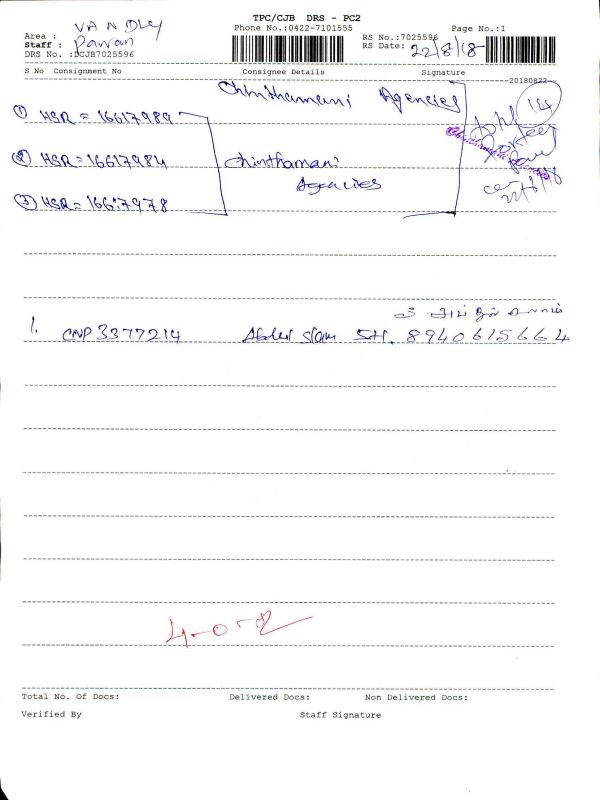 TPC/CJB DRS - PC2
VAN DLY
Phone No.:0422-7101555 Page No.:1
Area :
Staff : Pavan
RS No.:7025596
DRS No. :DCJB7025596
RS Date: 22/8/18
S No Consignment No Consignee Details Signature
20180822
Chinthamani Agencies
14
① HSR = 16617989
② HSR = 16617984 Chinthamani
Agencies
③ HSR = 16617978
22/8/18
1. CNP 3377214 Abdul Slam 8940615664
4-0-
Total No. Of Docs: Delivered Docs: Non Delivered Docs:
Verified By Staff Signature